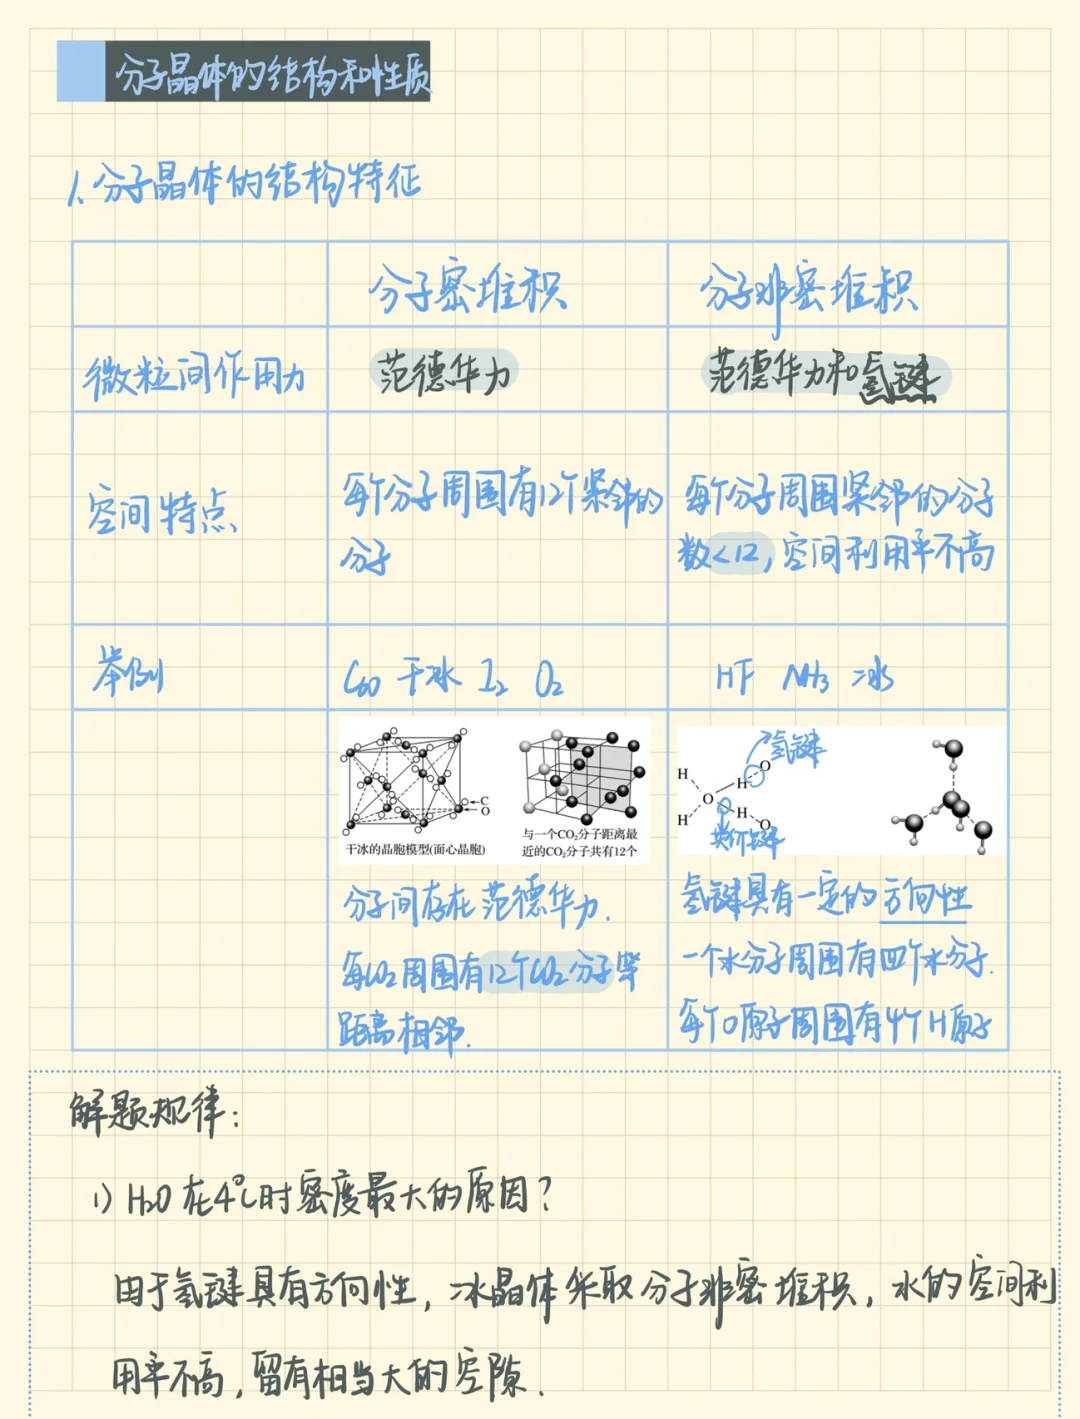 分子晶体的结构和性质
1.分子晶体的结构特征
分子密堆积
分子非密堆积
微粒间作用力
范德华力
范德华力和氢键
空间特点
每个分子周围有12个紧邻的
分子
每个分子周围紧邻的分子
数<12,空间利用率不高
举例
C60 干冰 I2 O2
HF NH3 冰
C
O
干冰的晶胞模型(面心晶胞)
与一个CO2分子距离最
近的CO2分子共有12个
氢键
H
O
H
O
H
H
O
共价键
分子间存在范德华力.
每CO2周围有12个CO2分子等
距离相邻.
氢键具有一定的方向性
一个水分子周围有四个水分子.
每个O原子周围有4个H原子
解题规律:
1) H2O在4℃时密度最大的原因?
由于氢键具有方向性,冰晶体采取分子非密堆积,水的空间利
用率不高,留有相当大的空隙.